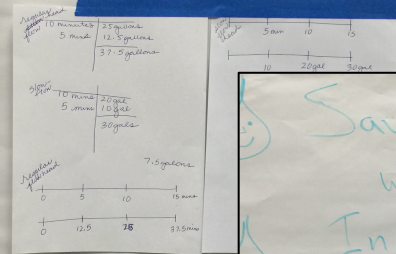 regular
flow
10 minutes 25 gallons
5 mins 12.5 gallons
37.5 gallons
slow
flow
10 mins 20 gal
5 mins 10 gal
30 gals
7.5 galons
regular
0 5 10 15 mins
0 12.5 25 37.5 mins
5 min 10 15
10 20 gal 30 gal
Sav
In